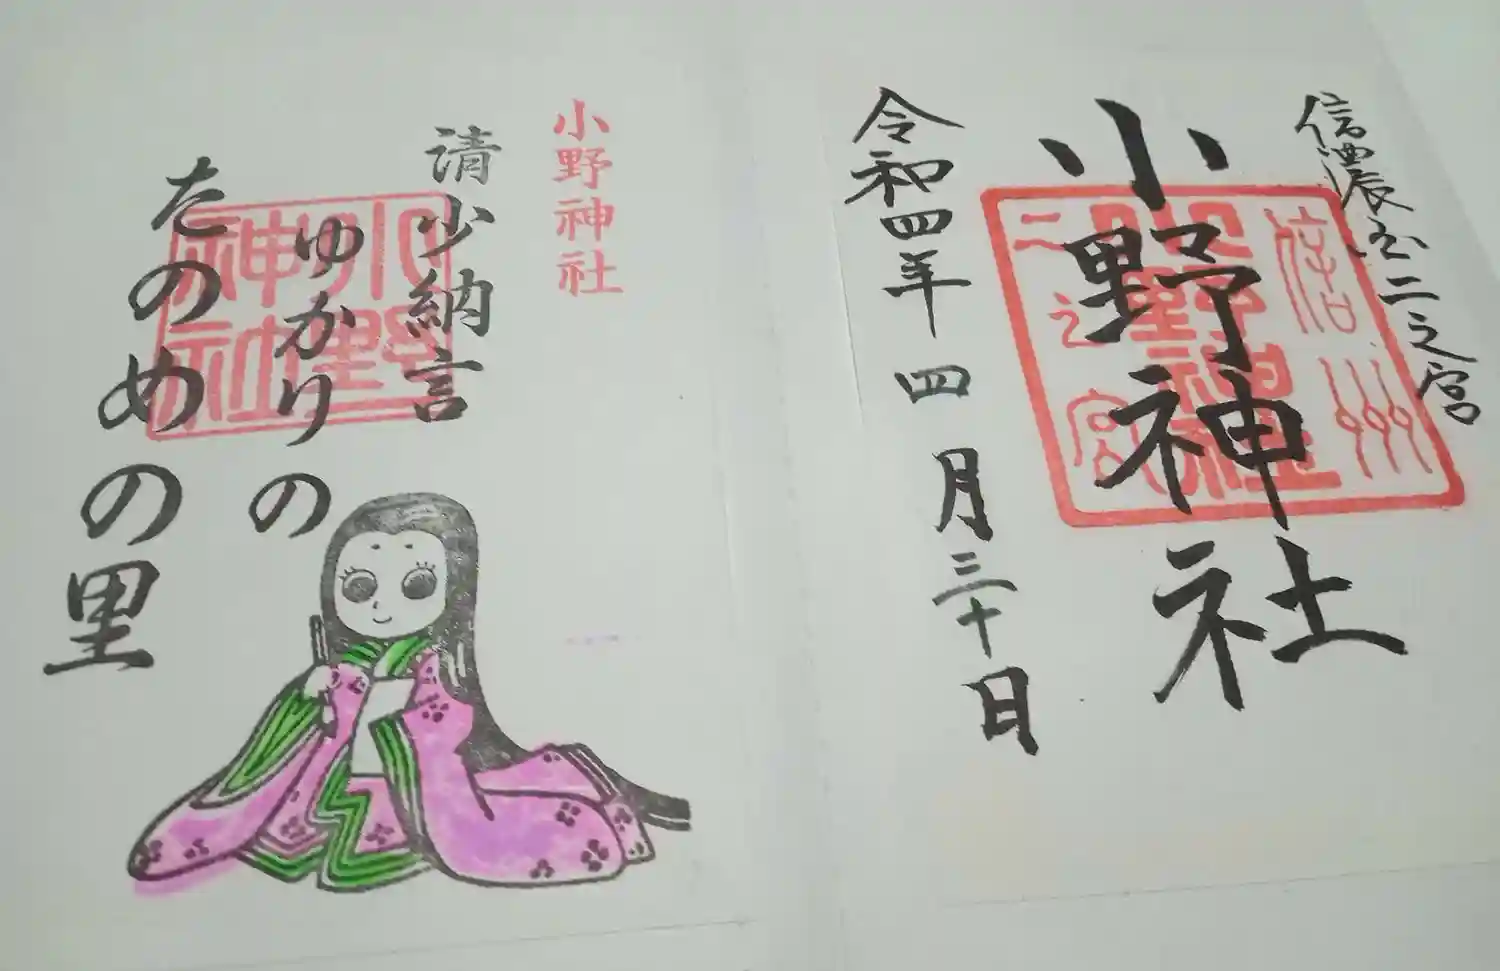 信濃国二之宮
小野神社
令和四年四月三十日
信州
小野神社
二之宮
小野神社
清少納言
ゆかりの
たのめの里
小野神社